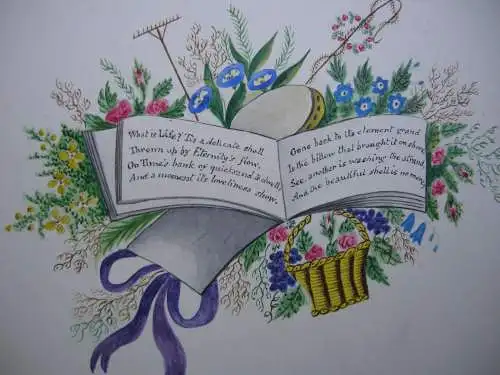 What is Life? 'Tis a delicate shell
Thrown up by Eternity's flow,
On Time's bank of quicksand to dwell,
And a moment its loveliness show.
Gone back to its element grand
Is the billow that brought it on shore
See, another is washing the strand,
And the beautiful shell is no more.